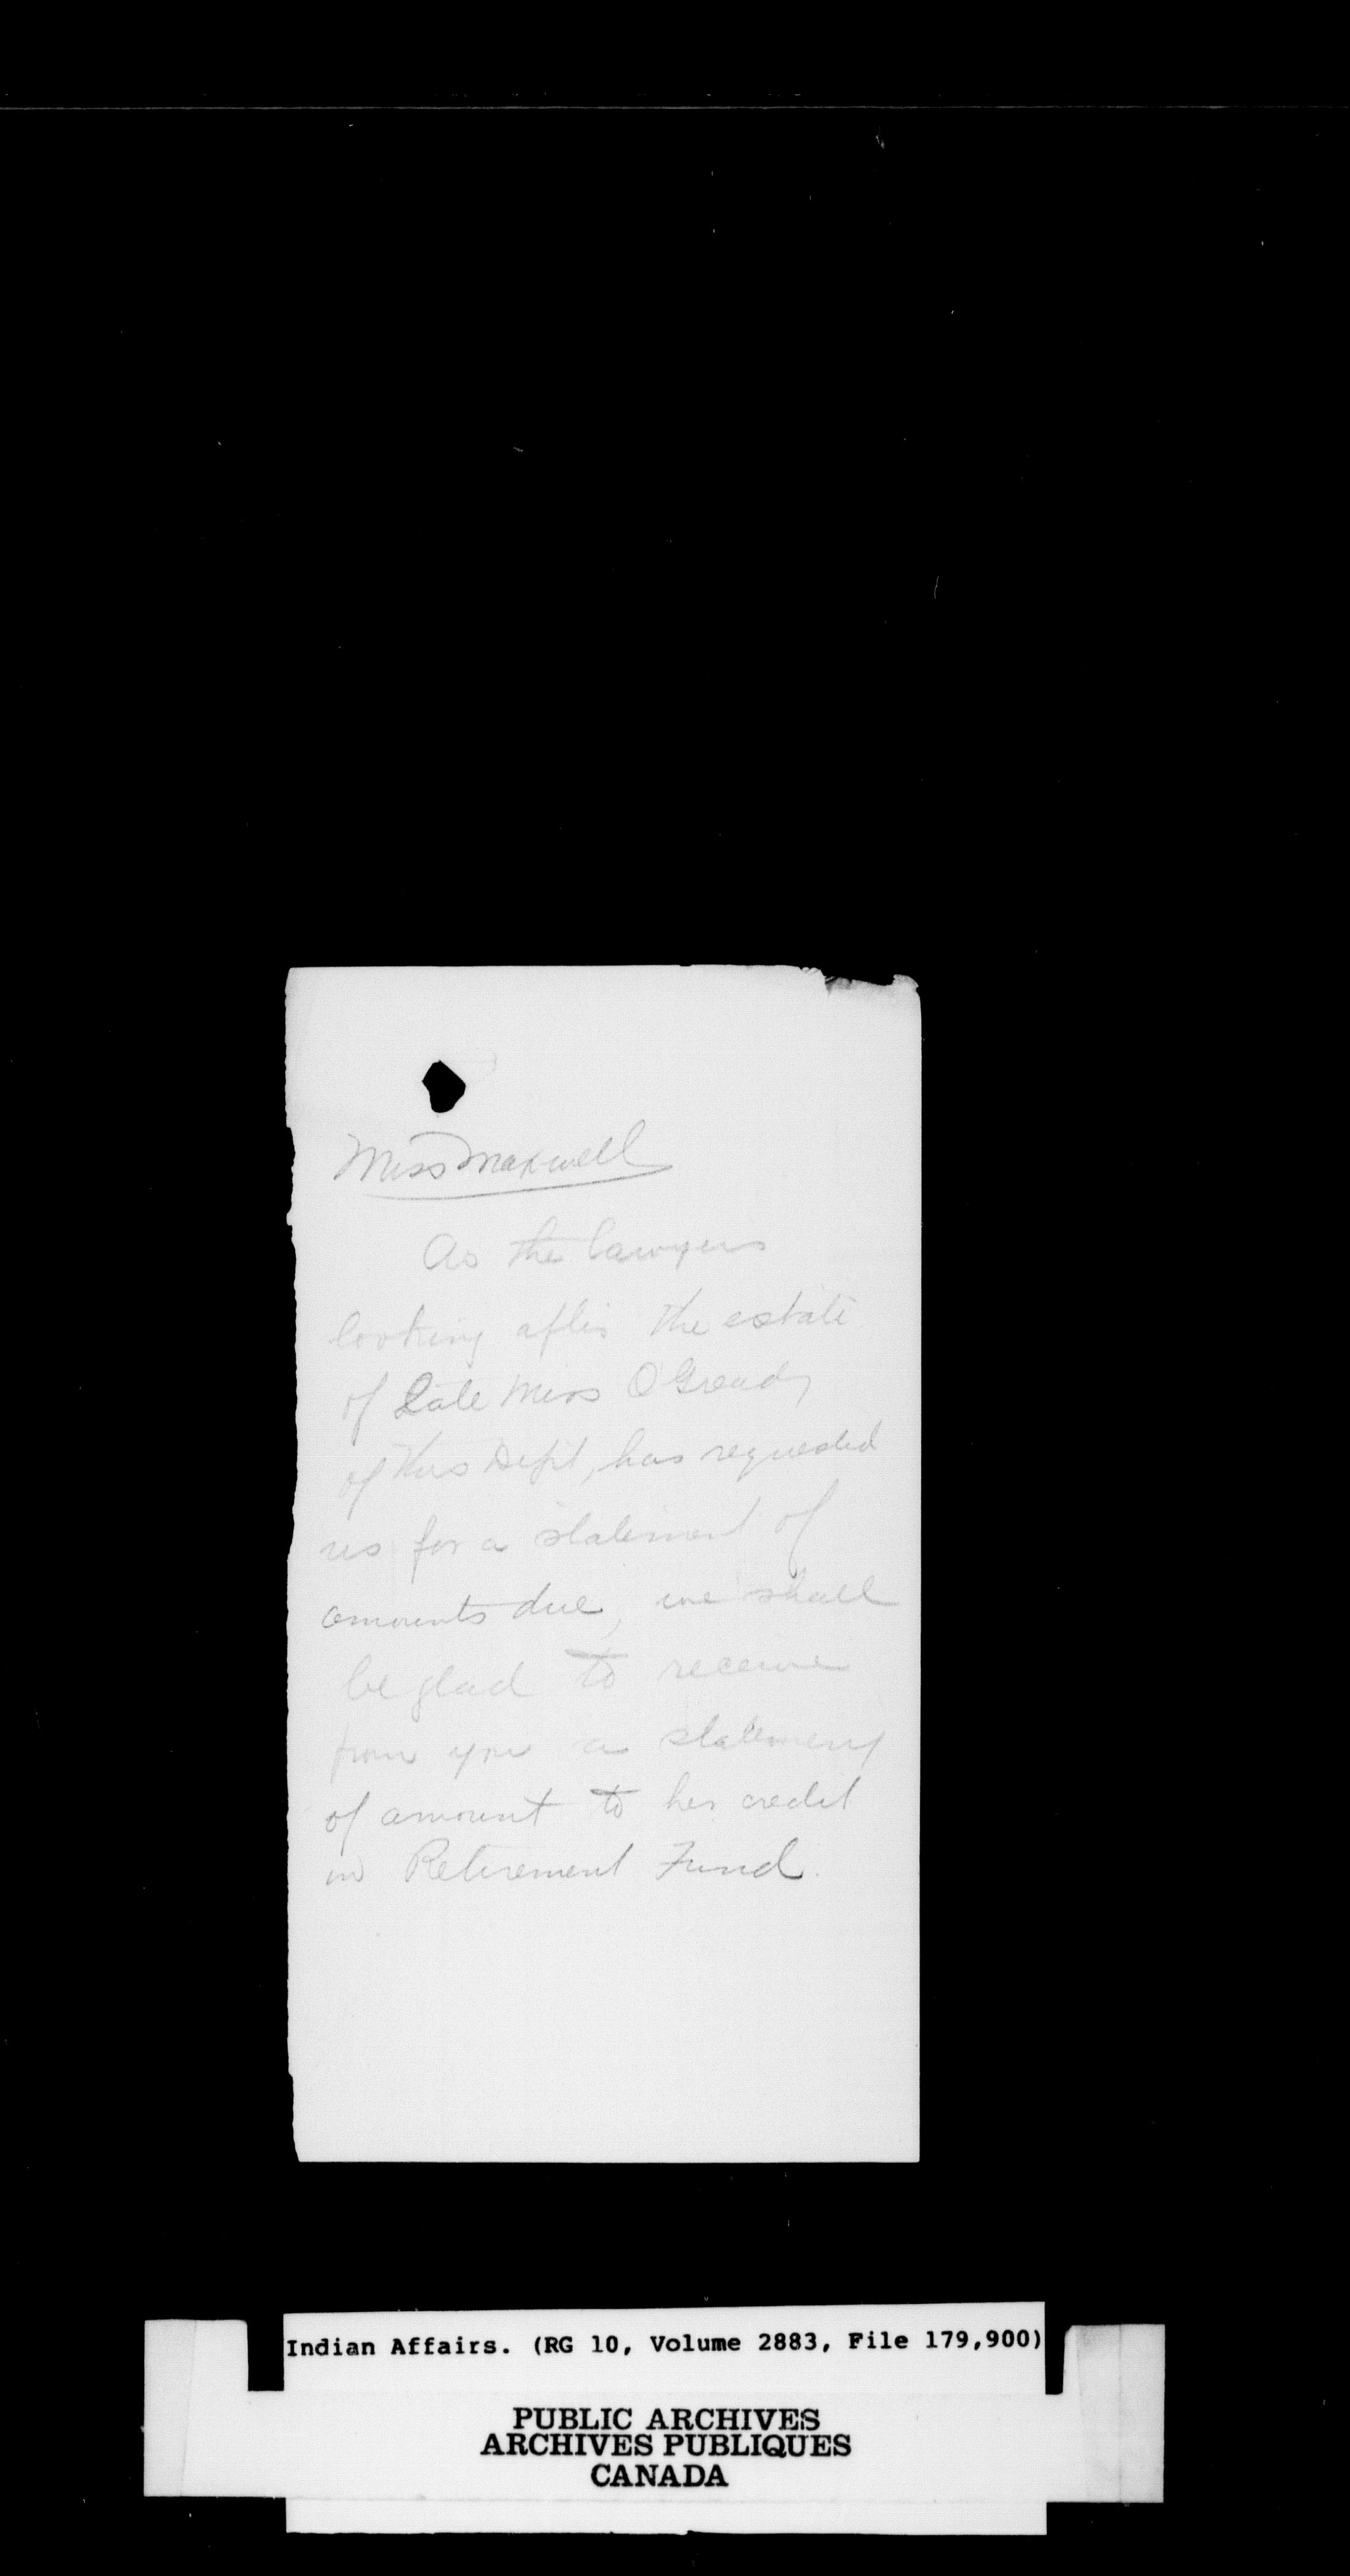 Miss Maxwell
As the lawyers
looking after the estate
of Late Miss O'Grady
of this Dept, has requested
us for a statement of
amounts due, we shall
be glad to receive
from you a statement
of amount to her credit
in Retirement Fund.
Indian Affairs. (RG 10, Volume 2883, File 179,900)
PUBLIC ARCHIVES
ARCHIVES PUBLIQUES
CANADA